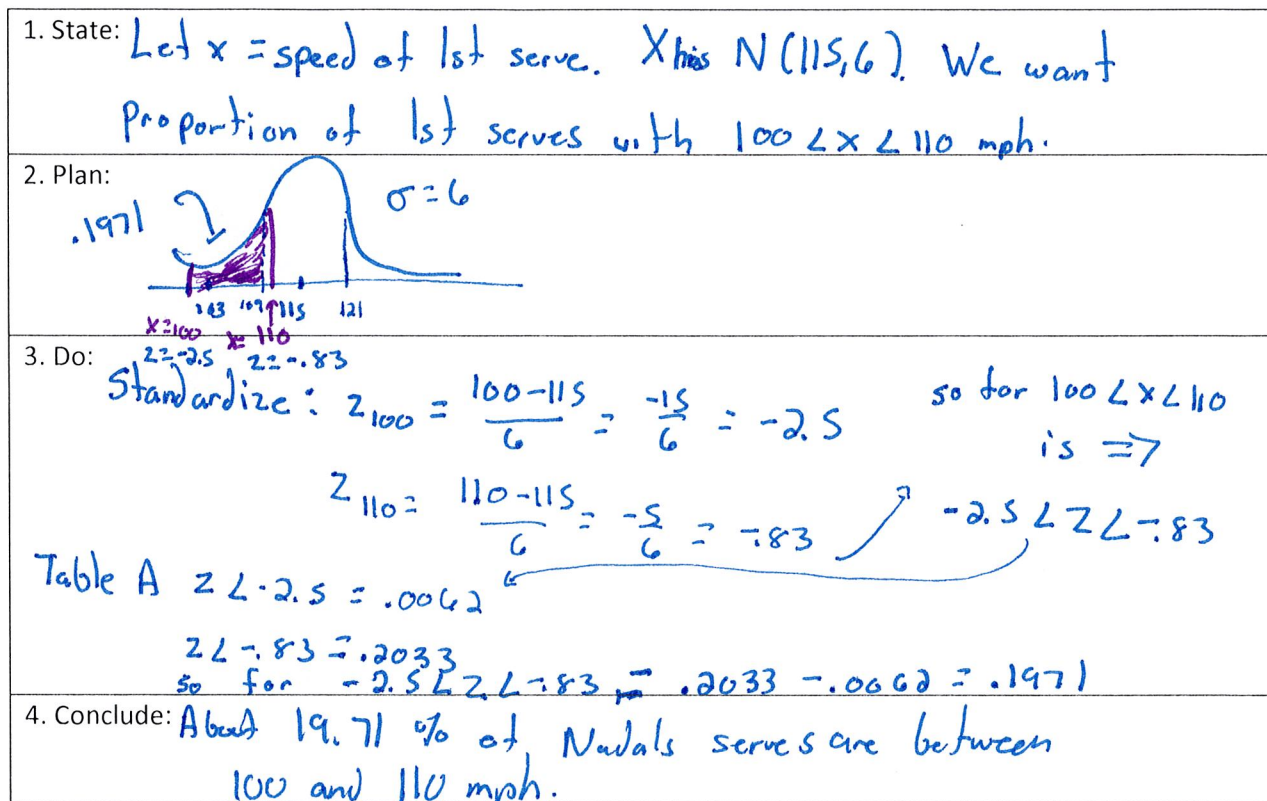 1. State: Let x = speed of 1st serve. X has N(115,6). We want
Proportion of 1st serves with 100 < x < 110 mph.
2. Plan:
.1971
σ = 6
103 109 115 121
x=100 x= 110
z=-2.5 z=-.83
3. Do:
Standardize: z100 = 100-115/6 = -15/6 = -2.5
so for 100 < x < 110
is =>
z110 = 110-115/6 = -5/6 = -.83
-2.5 < z < -.83
Table A z < -2.5 = .0062
z < -.83 = .2033
so for -2.5 < z < -.83 = .2033 - .0062 = .1971
4. Conclude: About 19.71 % of Nadals serves are between
100 and 110 mph.